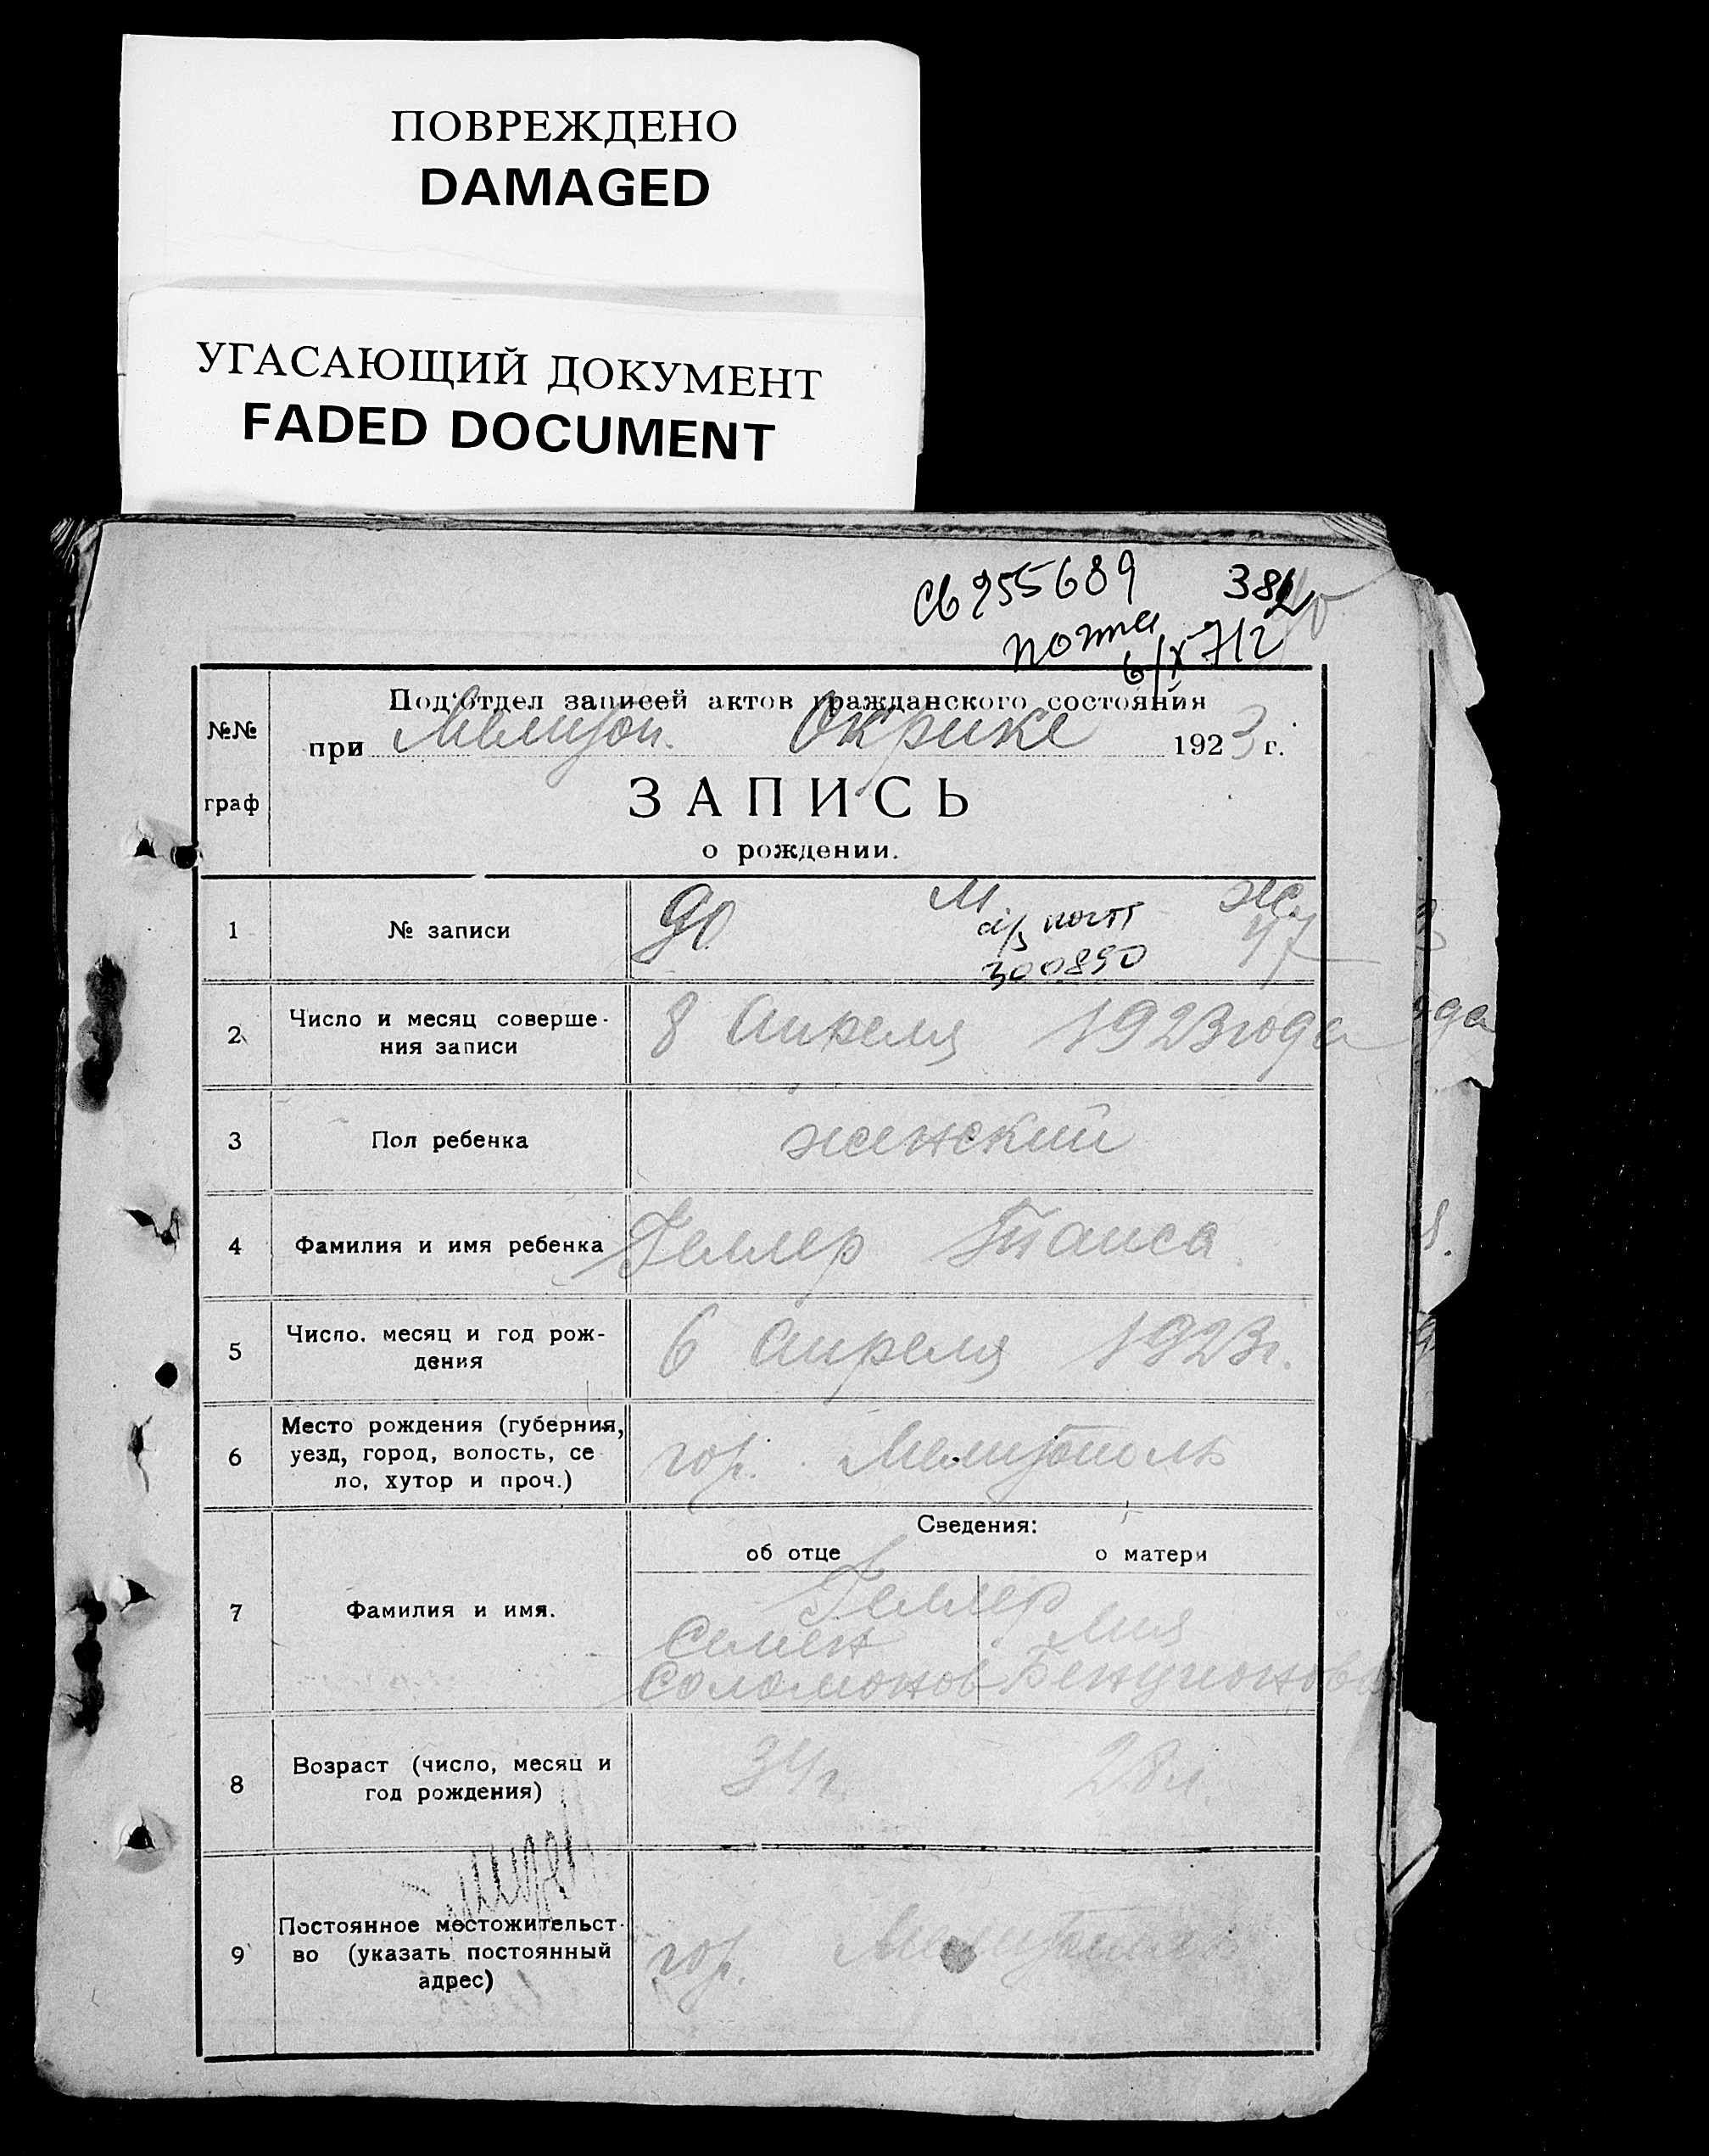 ПОВРЕЖДЕНО
DAMAGED
УГАСАЮЩИЙ ДОКУМЕНТ
FADED DOCUMENT
382
почта
№№
граф
Под'отдел записей актов гражданского состояния
при Мелитоп. Окрике 1923 г.
ЗАПИСЬ
о рождении.
1 № записи 90 М Ж.
47
300890
2 Число и месяц соверше-
ния записи
8 Апреля 1923 года
3 Пол ребенка женский
4 Фамилия и имя ребенка Геллер Таиса
5 Число, месяц и год рож-
дения
6 Апреля 1923 г.
6 Место рождения (губерния,
уезд, город, волость, се
ло, хутор и проч.)
гор. Мелитополь
Сведения:
об отце о матери
7 Фамилия и имя.
Геллер
Семен Лия
Соломонов Бенционова
8 Возраст (число, месяц и
год рождения)
34 г. 28 л.
9 Постоянное местожительст-
во (указать постоянный
адрес)
гор. Мелитополь